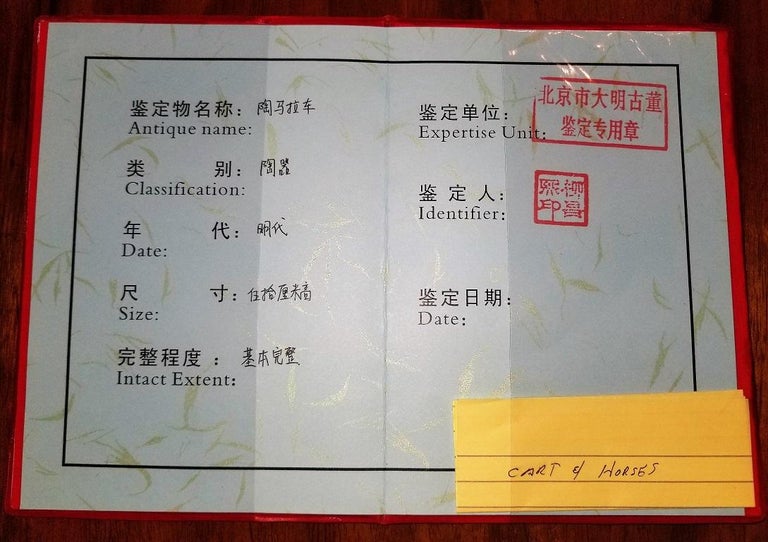 鉴定物名称：陶马拉车
Antique name:
类 别：陶器
Classification:
年 代：明代
Date:
尺 寸：伍拾厘米高
Size:
完整程度：基本完整
Intact Extent:
鉴定单位：
Expertise Unit:
北京市大明古董
鉴定专用章
鉴定人：
Identifier:
鉴定日期：
Date:
CART & HORSES